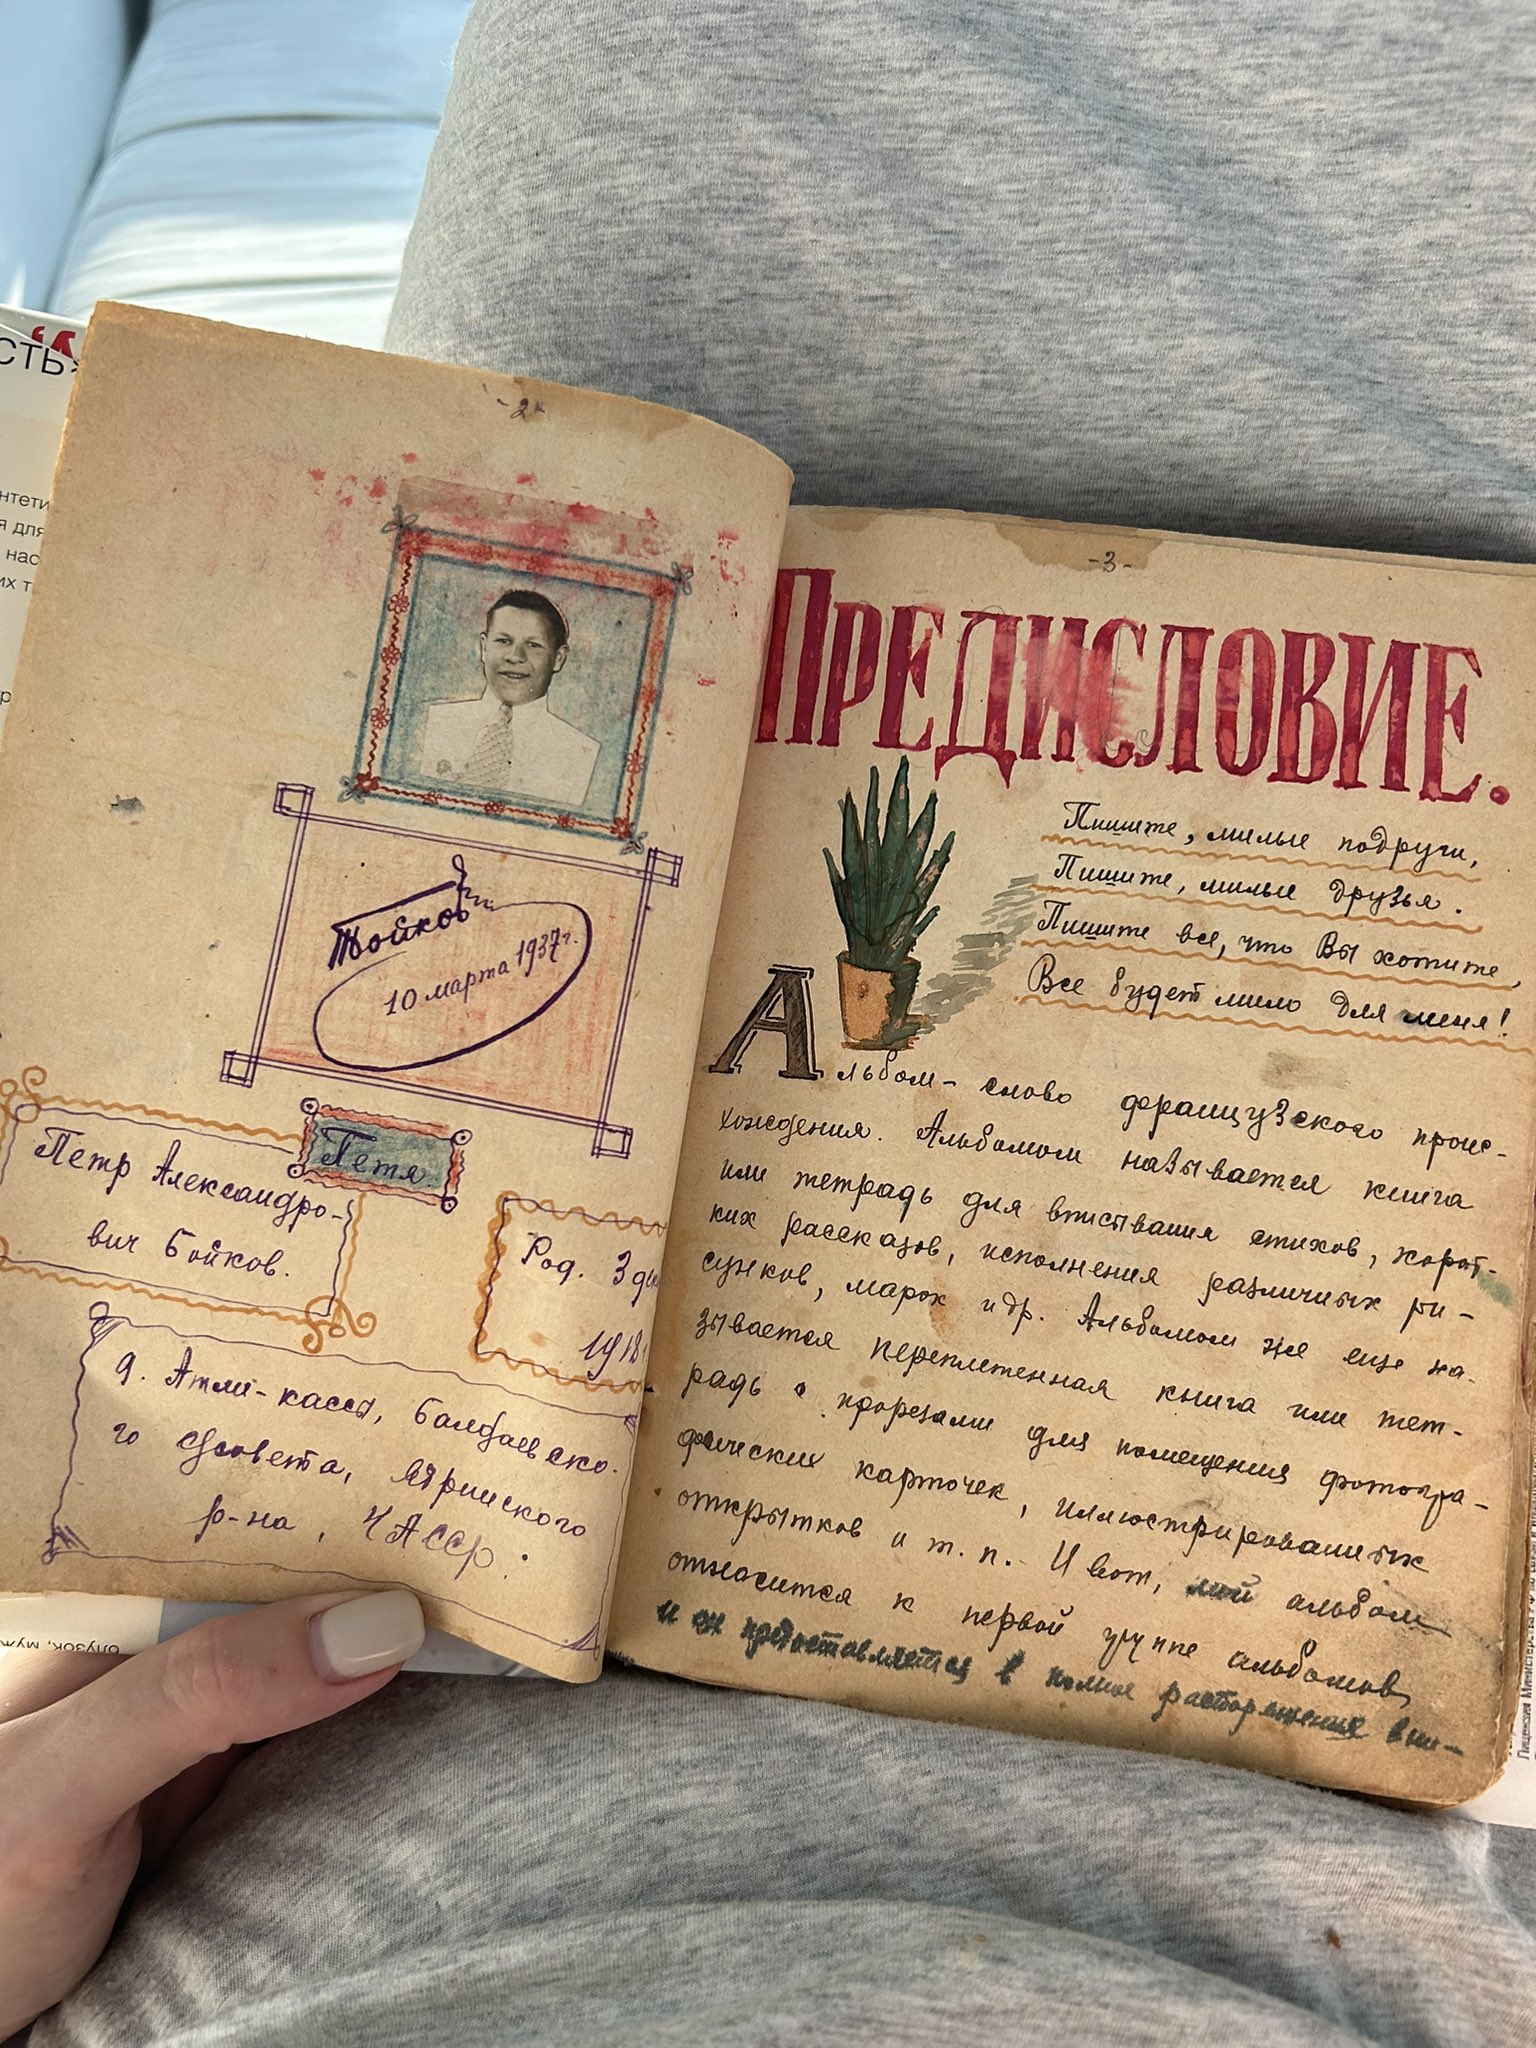 -2-
Бойков
10 марта 1937г.
Петя
Петр Александро-
вич Бойков.
Род. 3 де
1918
д. Атли-кассы, Балдаевско-
го с/совета, Ядринского
р-на, ЧАССР.
-3-
ПРЕДИСЛОВИЕ.
Пишите, милые подруги,
Пишите, милые друзья.
Пишите все, что Вы хотите,
Все будет мило для меня!
Альбом - слово французского проис-
хождения. Альбомом называется книга
или тетрадь для вписывания стихов, корот-
ких рассказов, исполнения различных ри-
сунков, марок и др. Альбомом же еще на-
зывается переплетенная книга или тет-
радь с прорезами для помещения фотогра-
фических карточек, иллюстрированных
открытков и т. п. - И вот, мой альбом
относится к первой группе альбомов,
и он предоставляется в полное распоряжение вни-
СТЬ»
нтети
я для
нас
их т
олузок, муж